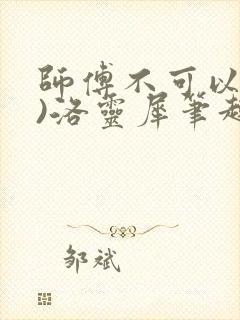 師傅不可以
)洛靈犀筆趣
邹斌